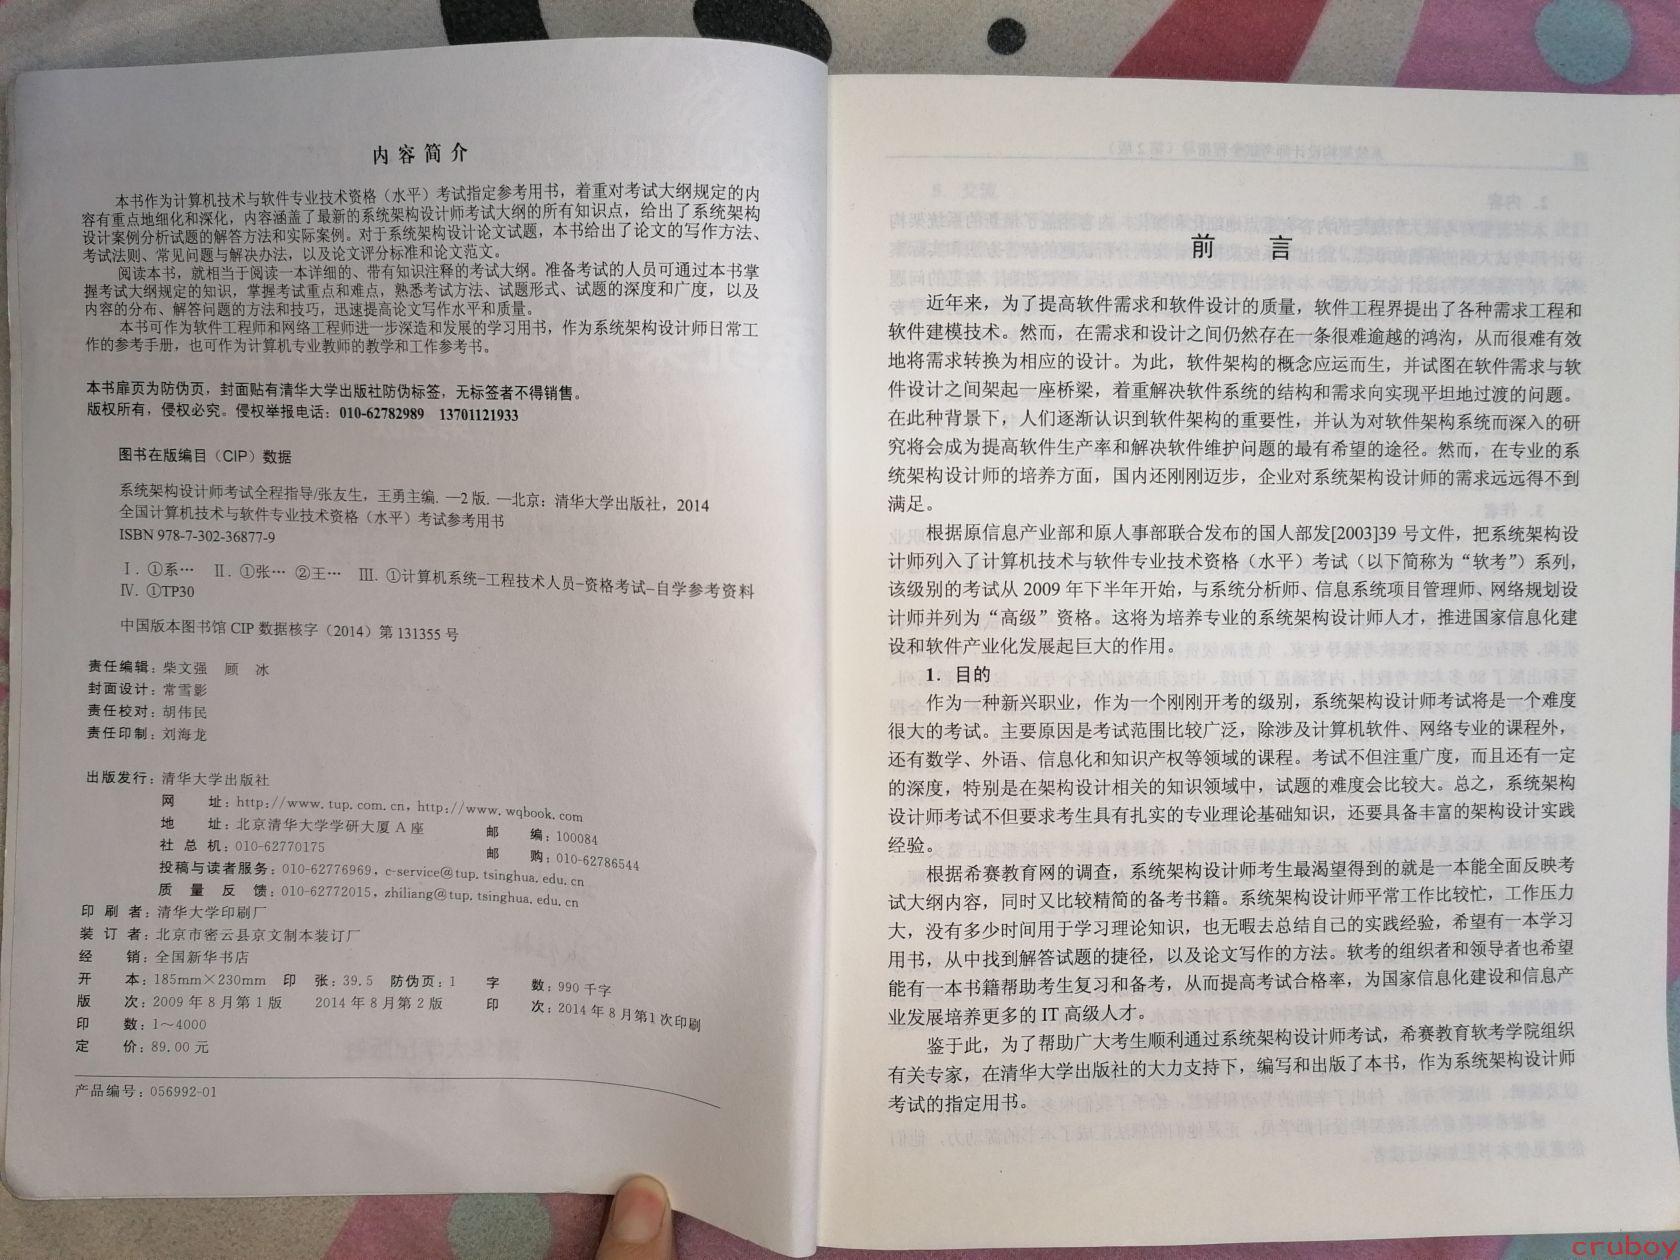 内容简介
本书作为计算机技术与软件专业技术资格（水平）考试指定参考用书，着重对考试大纲规定的内
容有重点地细化和深化，内容涵盖了最新的系统架构设计师考试大纲的所有知识点，给出了系统架构
设计案例分析试题的解答方法和实际案例。对于系统架构设计论文试题，本书给出了论文的写作方法、
考试法则、常见问题与解决办法，以及论文评分标准和论文范文。
阅读本书，就相当于阅读一本详细的、带有知识注释的考试大纲。准备考试的人员可通过本书掌
握考试大纲规定的知识，掌握考试重点和难点，熟悉考试方法、试题形式、试题的深度和广度，以及
内容的分布、解答问题的方法和技巧，迅速提高论文写作水平和质量。
本书可作为软件工程师和网络工程师进一步深造和发展的学习用书，作为系统架构设计师日常工
作的参考手册，也可作为计算机专业教师的教学和工作参考书。
本书扉页为防伪页，封面贴有清华大学出版社防伪标签，无标签者不得销售。
版权所有，侵权必究。侵权举报电话：010-62782989 13701121933
图书在版编目（CIP）数据
系统架构设计师考试全程指导/张友生，王勇主编. —2版. —北京：清华大学出版社，2014
全国计算机技术与软件专业技术资格（水平）考试参考用书
ISBN 978-7-302-36877-9
Ⅰ. ①系… Ⅱ. ①张… ②王… Ⅲ. ①计算机系统–工程技术人员–资格考试–自学参考资料
Ⅳ. ①TP30
中国版本图书馆 CIP 数据核字（2014）第 131355 号
责任编辑：柴文强 顾 冰
封面设计：常雪影
责任校对：胡伟民
责任印制：刘海龙
出版发行：清华大学出版社
网 址：http://www.tup.com.cn, http://www.wqbook.com
地 址：北京清华大学学研大厦 A 座 邮 编：100084
社 总 机：010-62770175 邮 购：010-62786544
投稿与读者服务：010-62776969, c-service@tup.tsinghua.edu.cn
质 量 反 馈：010-62772015, zhiliang@tup.tsinghua.edu.cn
印 刷 者：清华大学印刷厂
装 订 者：北京市密云县京文制本装订厂
经 销：全国新华书店
开 本：185mm×230mm 印 张：39.5 防伪页：1 字 数：990 千字
版 次：2009 年 8 月第 1 版 2014 年 8 月第 2 版 印 次：2014 年 8 月第1次印刷
印 数：1～4000
定 价：89.00 元
产品编号：056992-01
前 言
近年来，为了提高软件需求和软件设计的质量，软件工程界提出了各种需求工程和
软件建模技术。然而，在需求和设计之间仍然存在一条很难逾越的鸿沟，从而很难有效
地将需求转换为相应的设计。为此，软件架构的概念应运而生，并试图在软件需求与软
件设计之间架起一座桥梁，着重解决软件系统的结构和需求向实现平坦地过渡的问题。
在此种背景下，人们逐渐认识到软件架构的重要性，并认为对软件架构系统而深入的研
究将会成为提高软件生产率和解决软件维护问题的最有希望的途径。然而，在专业的系
统架构设计师的培养方面，国内还刚刚迈步，企业对系统架构设计师的需求远远得不到
满足。
根据原信息产业部和原人事部联合发布的国人部发[2003]39 号文件，把系统架构设
计师列入了计算机技术与软件专业技术资格（水平）考试（以下简称为“软考”）系列，
该级别的考试从 2009 年下半年开始，与系统分析师、信息系统项目管理师、网络规划设
计师并列为“高级”资格。这将为培养专业的系统架构设计师人才，推进国家信息化建
设和软件产业化发展起巨大的作用。
1．目的
作为一种新兴职业，作为一个刚刚开考的级别，系统架构设计师考试将是一个难度
很大的考试。主要原因是考试范围比较广泛，除涉及计算机软件、网络专业的课程外，
还有数学、外语、信息化和知识产权等领域的课程。考试不但注重广度，而且还有一定
的深度，特别是在架构设计相关的知识领域中，试题的难度会比较大。总之，系统架构
设计师考试不但要求考生具有扎实的专业理论基础知识，还要具备丰富的架构设计实践
经验。
根据希赛教育网的调查，系统架构设计师考生最渴望得到的就是一本能全面反映考
试大纲内容，同时又比较精简的备考书籍。系统架构设计师平常工作比较忙，工作压力
大，没有多少时间用于学习理论知识，也无暇去总结自己的实践经验，希望有一本学习
用书，从中找到解答试题的捷径，以及论文写作的方法。软考的组织者和领导者也希望
能有一本书籍帮助考生复习和备考，从而提高考试合格率，为国家信息化建设和信息产
业发展培养更多的 IT 高级人才。
鉴于此，为了帮助广大考生顺利通过系统架构设计师考试，希赛教育软考学院组织
有关专家，在清华大学出版社的大力支持下，编写和出版了本书，作为系统架构设计师
考试的指定用书。
cruboy